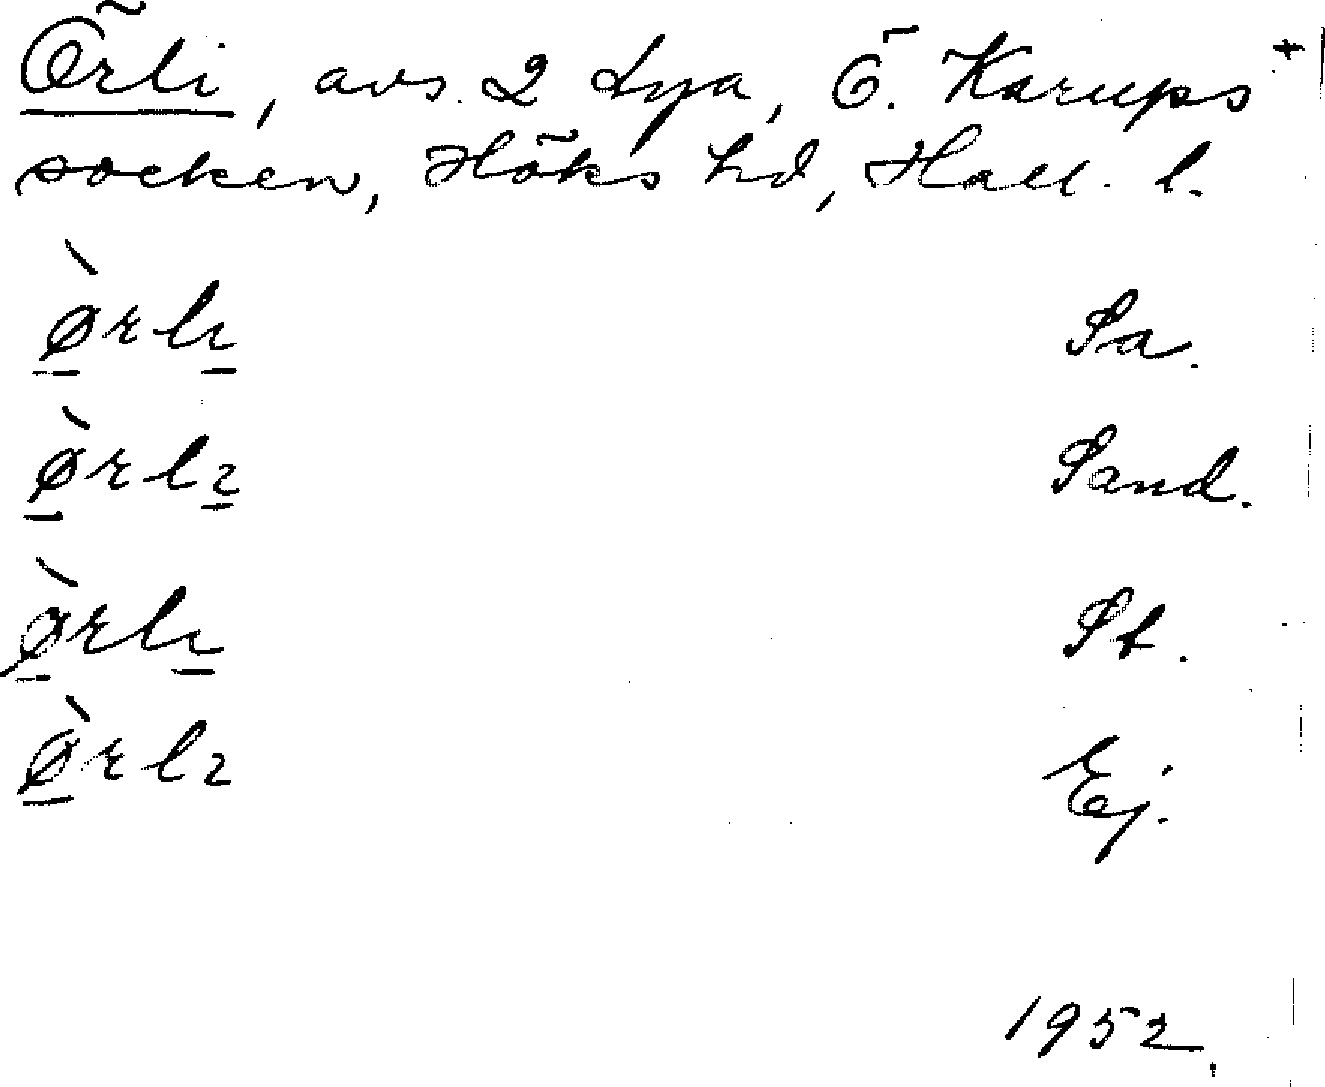 Örli, avs. 2 Lya, Ö. Karups +
socken, Höks hd, Hall. l.
ø̀rlɩ Sa.
ø̀rlɩ Sand.
ø̀rlɩ St.
ø̀rlɩ Ej.
1952.